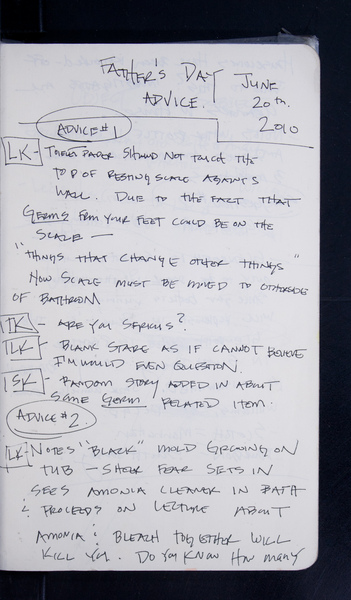 FATHER'S DAY
ADVICE.
JUNE
20th.
2010
ADVICE #1
LK - TOILET PAPER SHOULD NOT TOUCH THE
TOP OF RESTING SCALE AGAINTS
WALL. DUE TO THE FACT THAT
GERMS FROM YOUR FEET COULD BE ON THE
SCALE —
"THINGS THAT CHANGE OTHER THINGS"
NOW SCALE MUST BE MOVED TO OTHERSIDE
OF BATHROOM
TK - ARE YOU SERIOUS?.
LK - BLANK STARE AS IF CANNOT BELIEVE
I'M WOULD EVEN QUESTION.
SK - RANDOM STORY ADDED IN ABOUT
SOME GERM RELATED ITEM.
ADVICE #2.
LK - NOTES "BLACK" MOLD GROWING ON
TUB — SHEER FEAR SETS IN
SEES AMONIA CLEANER IN BATH
& PROCEEDS ON LECTURE ABOUT
AMONIA & BLEACH TOGETHER WILL
KILL YOU. DO YOU KNOW HOW MANY